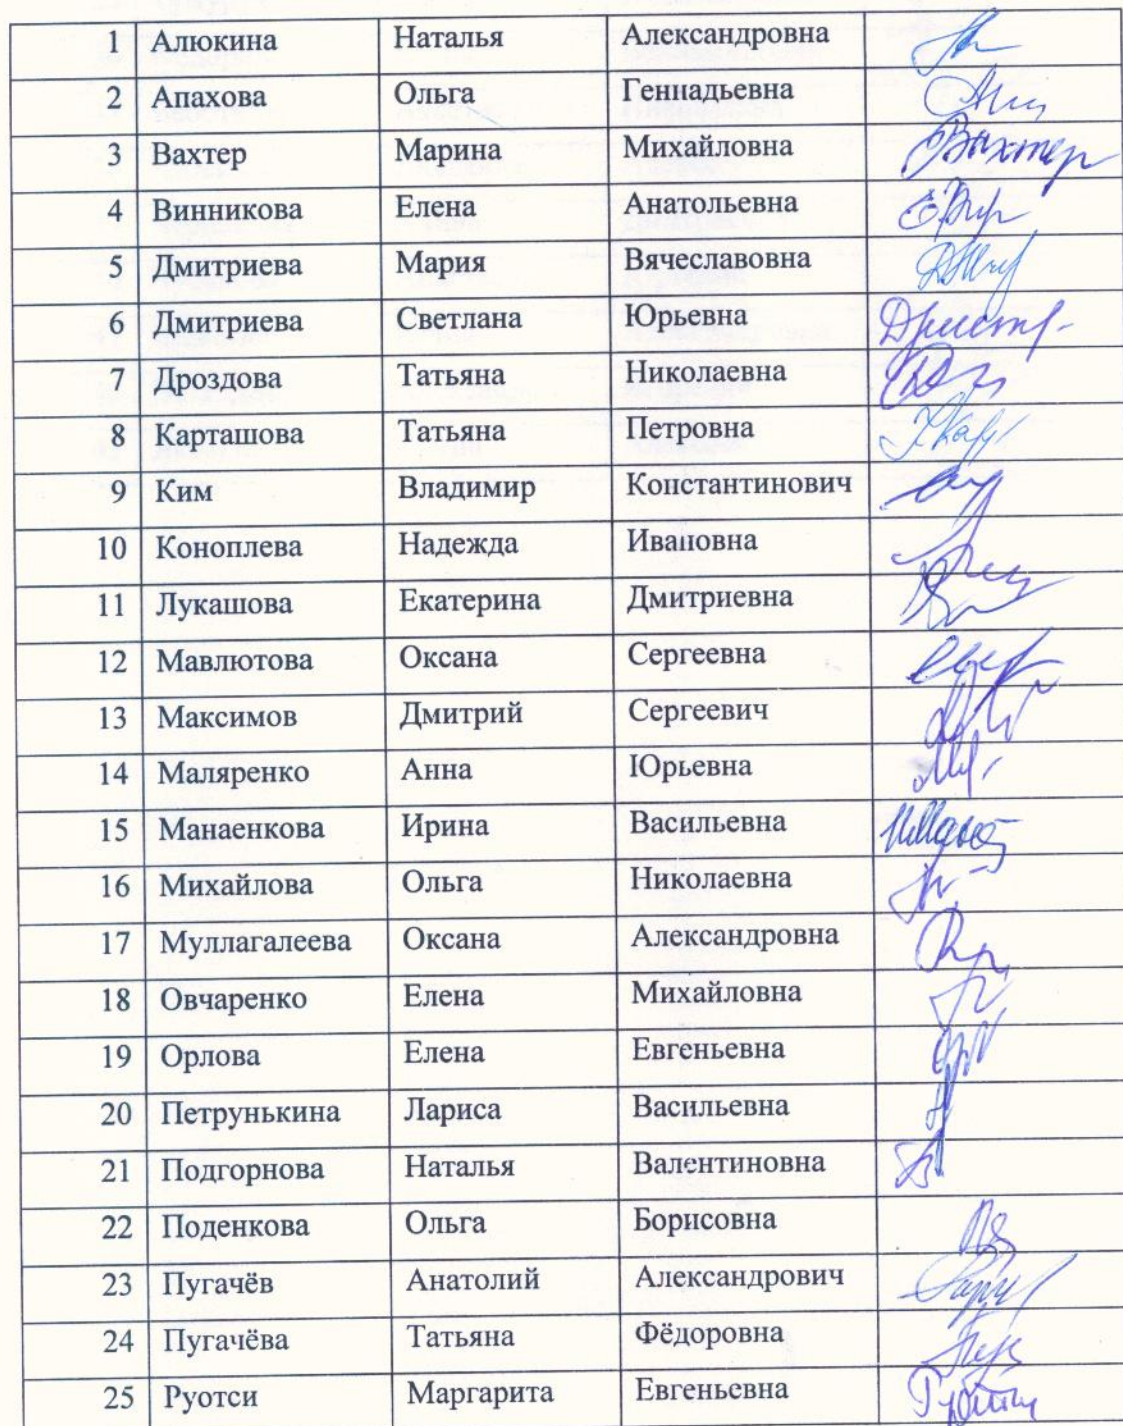 1 Алюкина Наталья Александровна
2 Апахова Ольга Геннадьевна
3 Вахтер Марина Михайловна Вахтер
4 Винникова Елена Анатольевна
5 Дмитриева Мария Вячеславовна
6 Дмитриева Светлана Юрьевна
7 Дроздова Татьяна Николаевна
8 Карташова Татьяна Петровна
9 Ким Владимир Константинович
10 Коноплева Надежда Ивановна
11 Лукашова Екатерина Дмитриевна
12 Мавлютова Оксана Сергеевна
13 Максимов Дмитрий Сергеевич
14 Маляренко Анна Юрьевна
15 Манаенкова Ирина Васильевна
16 Михайлова Ольга Николаевна
17 Муллагалеева Оксана Александровна
18 Овчаренко Елена Михайловна
19 Орлова Елена Евгеньевна
20 Петрунькина Лариса Васильевна
21 Подгорнова Наталья Валентиновна
22 Поденкова Ольга Борисовна
23 Пугачёв Анатолий Александрович
24 Пугачёва Татьяна Фёдоровна
25 Руотси Маргарита Евгеньевна